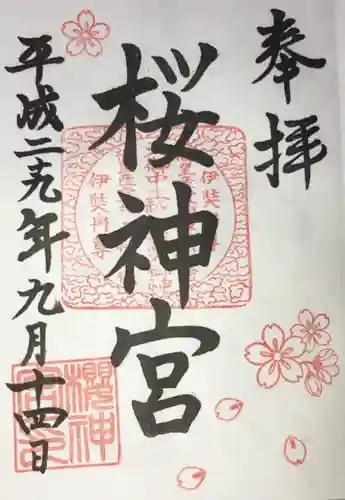 奉拝
桜神宮
平成二十九年九月十四日
櫻神宮印